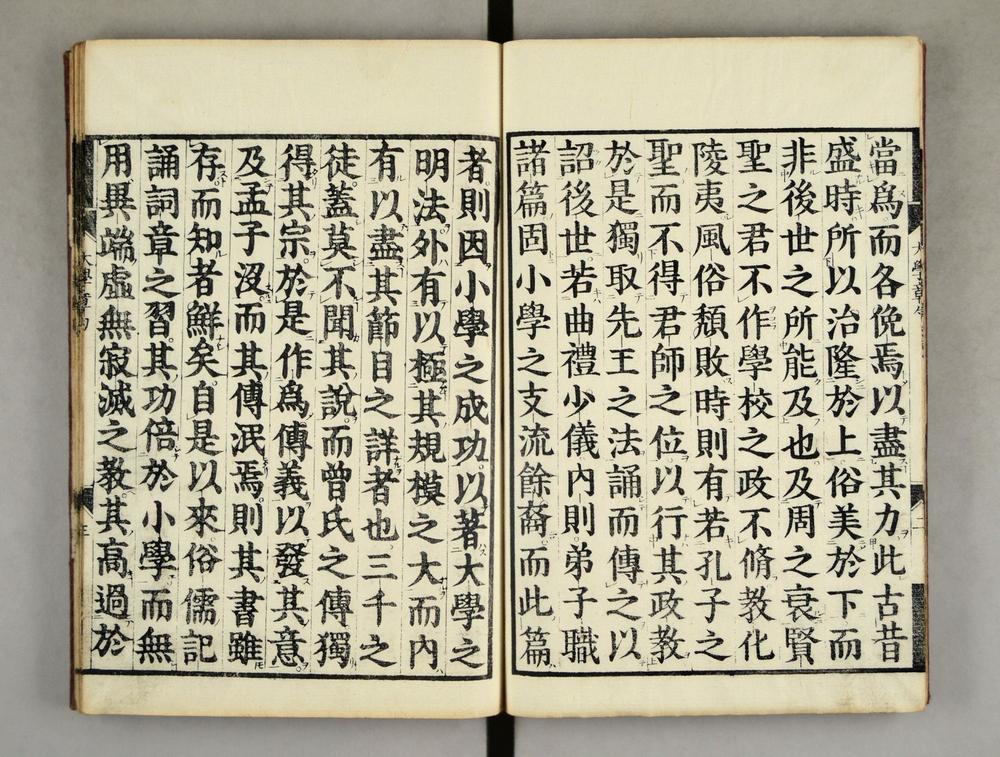 當爲而各俛焉以盡其力此古昔
盛時所以治隆於上俗美於下而
非後世之所能及也及周之衰賢
聖之君不作學校之政不脩教化
陵夷風俗頽敗時則有若孔子之
聖而不得君師之位以行其政教
於是獨取先王之法誦而傳之以
詔後世若曲禮少儀内則弟子職
諸篇固小學之支流餘裔而此篇
者則因小學之成功以著大學之
明法外有以極其規模之大而内
有以盡其節目之詳者也三千之
徒蓋莫不聞其說而曾氏之傳獨
得其宗於是作爲傳義以發其意
及孟子沒而其傳泯焉則其書雖
存而知者鮮矣自是以來俗儒記
誦詞章之習其功倍於小學而無
用異端虛無寂滅之教其高過於
大學章句